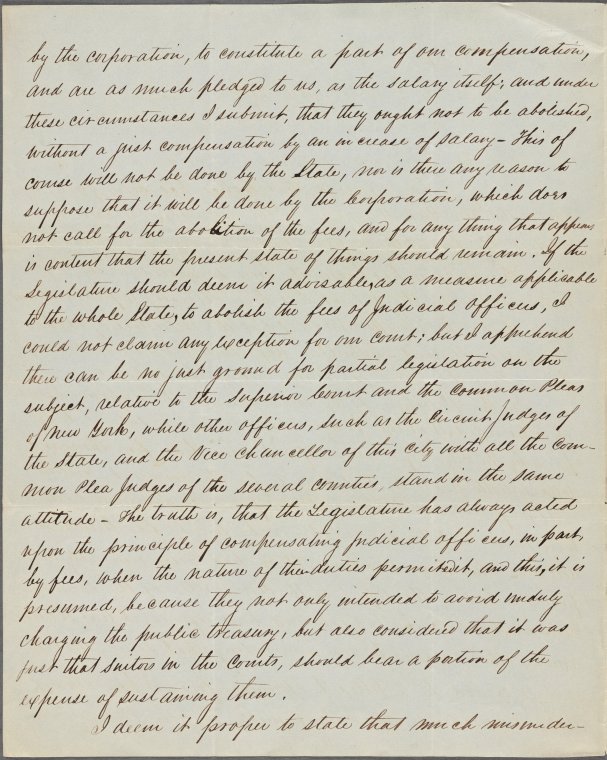 by the corporation, to constitute a part of our compensation,
and are as much pledged to us, as the salary itself; and under
these circumstances I submit, that they ought not to be abolished,
without a just compensation by an increase of salary – This of
course will not be done by the State, nor is there any reason to
suppose that it will be done by the Corporation, which does
not call for the abolition of the fees, and for any thing that appears
is content that the present state of things should remain. If the
Legislature should deem it advisable, as a measure applicable
to the whole State, to abolish the fees of Judicial Officers, I
could not claim any exception for our court; but I apprehend
there can be no just ground for partial legislation on the
subject, relative to the Superior Court and the Common Pleas
of New York, while other officers, such as the Circuit Judges of
the State, and the Vice Chancellor of this city with all the Com-
mon Plea Judges of the several counties, stand in the same
attitude – The truth is, that the Legislature has always acted
upon the principle of compensating Judicial officers, in part,
by fees, when the nature of their duties permitted it, and this, it is
presumed, because they not only intended to avoid unduly
charging the public treasury, but also considered that it was
just that suitors in the Courts, should bear a portion of the
expense of sustaining them.
I deem it proper to state that much misunder-